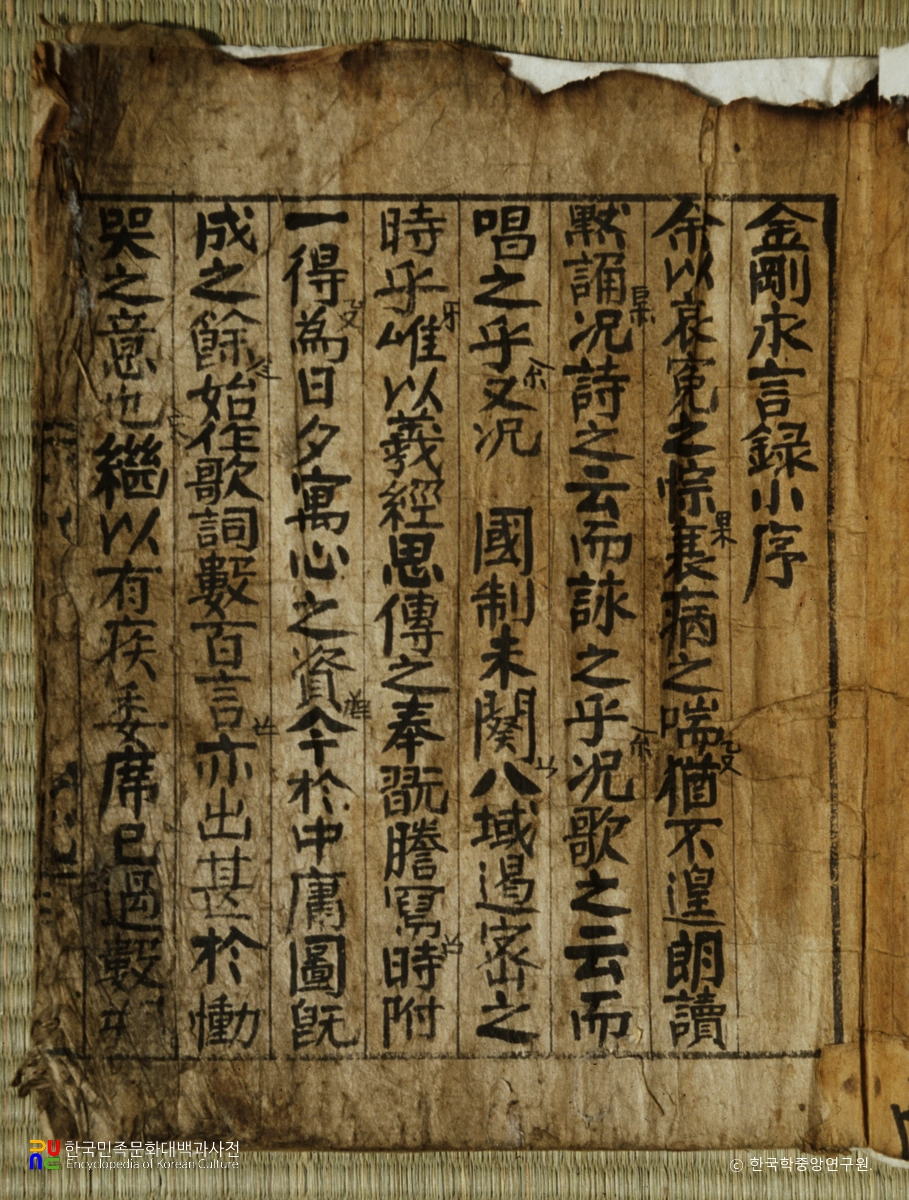 金剛永言録小序
余以哀寃之悰衰病之喘猶不遑朗讀
黙誦况詩之云而詠之乎况歌之云而
唱之乎又况 國制未闋八域遏密之
時乎唯以羲經思傳之奉翫謄寫時附
一得為日夕寓心之資今於中庸圖旣
成之餘始作歌詞數百言亦出甚於慟
哭之意也繼以有疾委席已過數
한국민족문화대백과사전
Encyclopedia of Korean Culture
© 한국학중앙연구원.